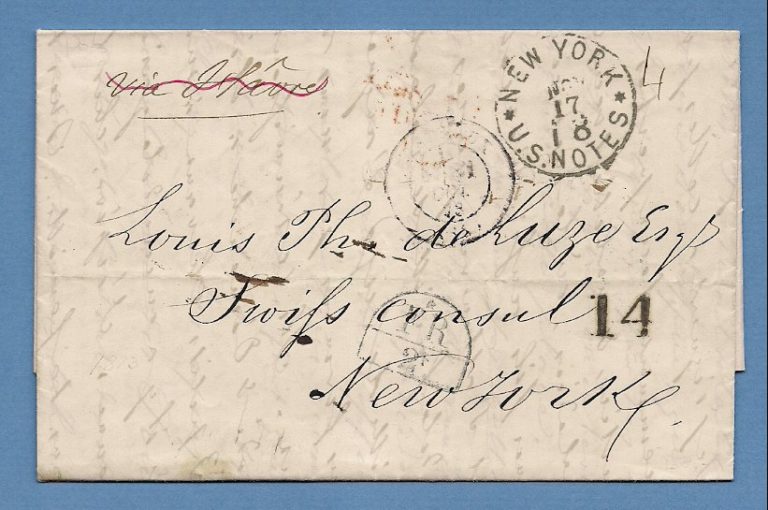 via Hâvre
4
NEW YORK
NOV
17
18
U.S. NOTES
Louis Ph. de Luze Esq
Swiss consul
14
FR
2
New York.